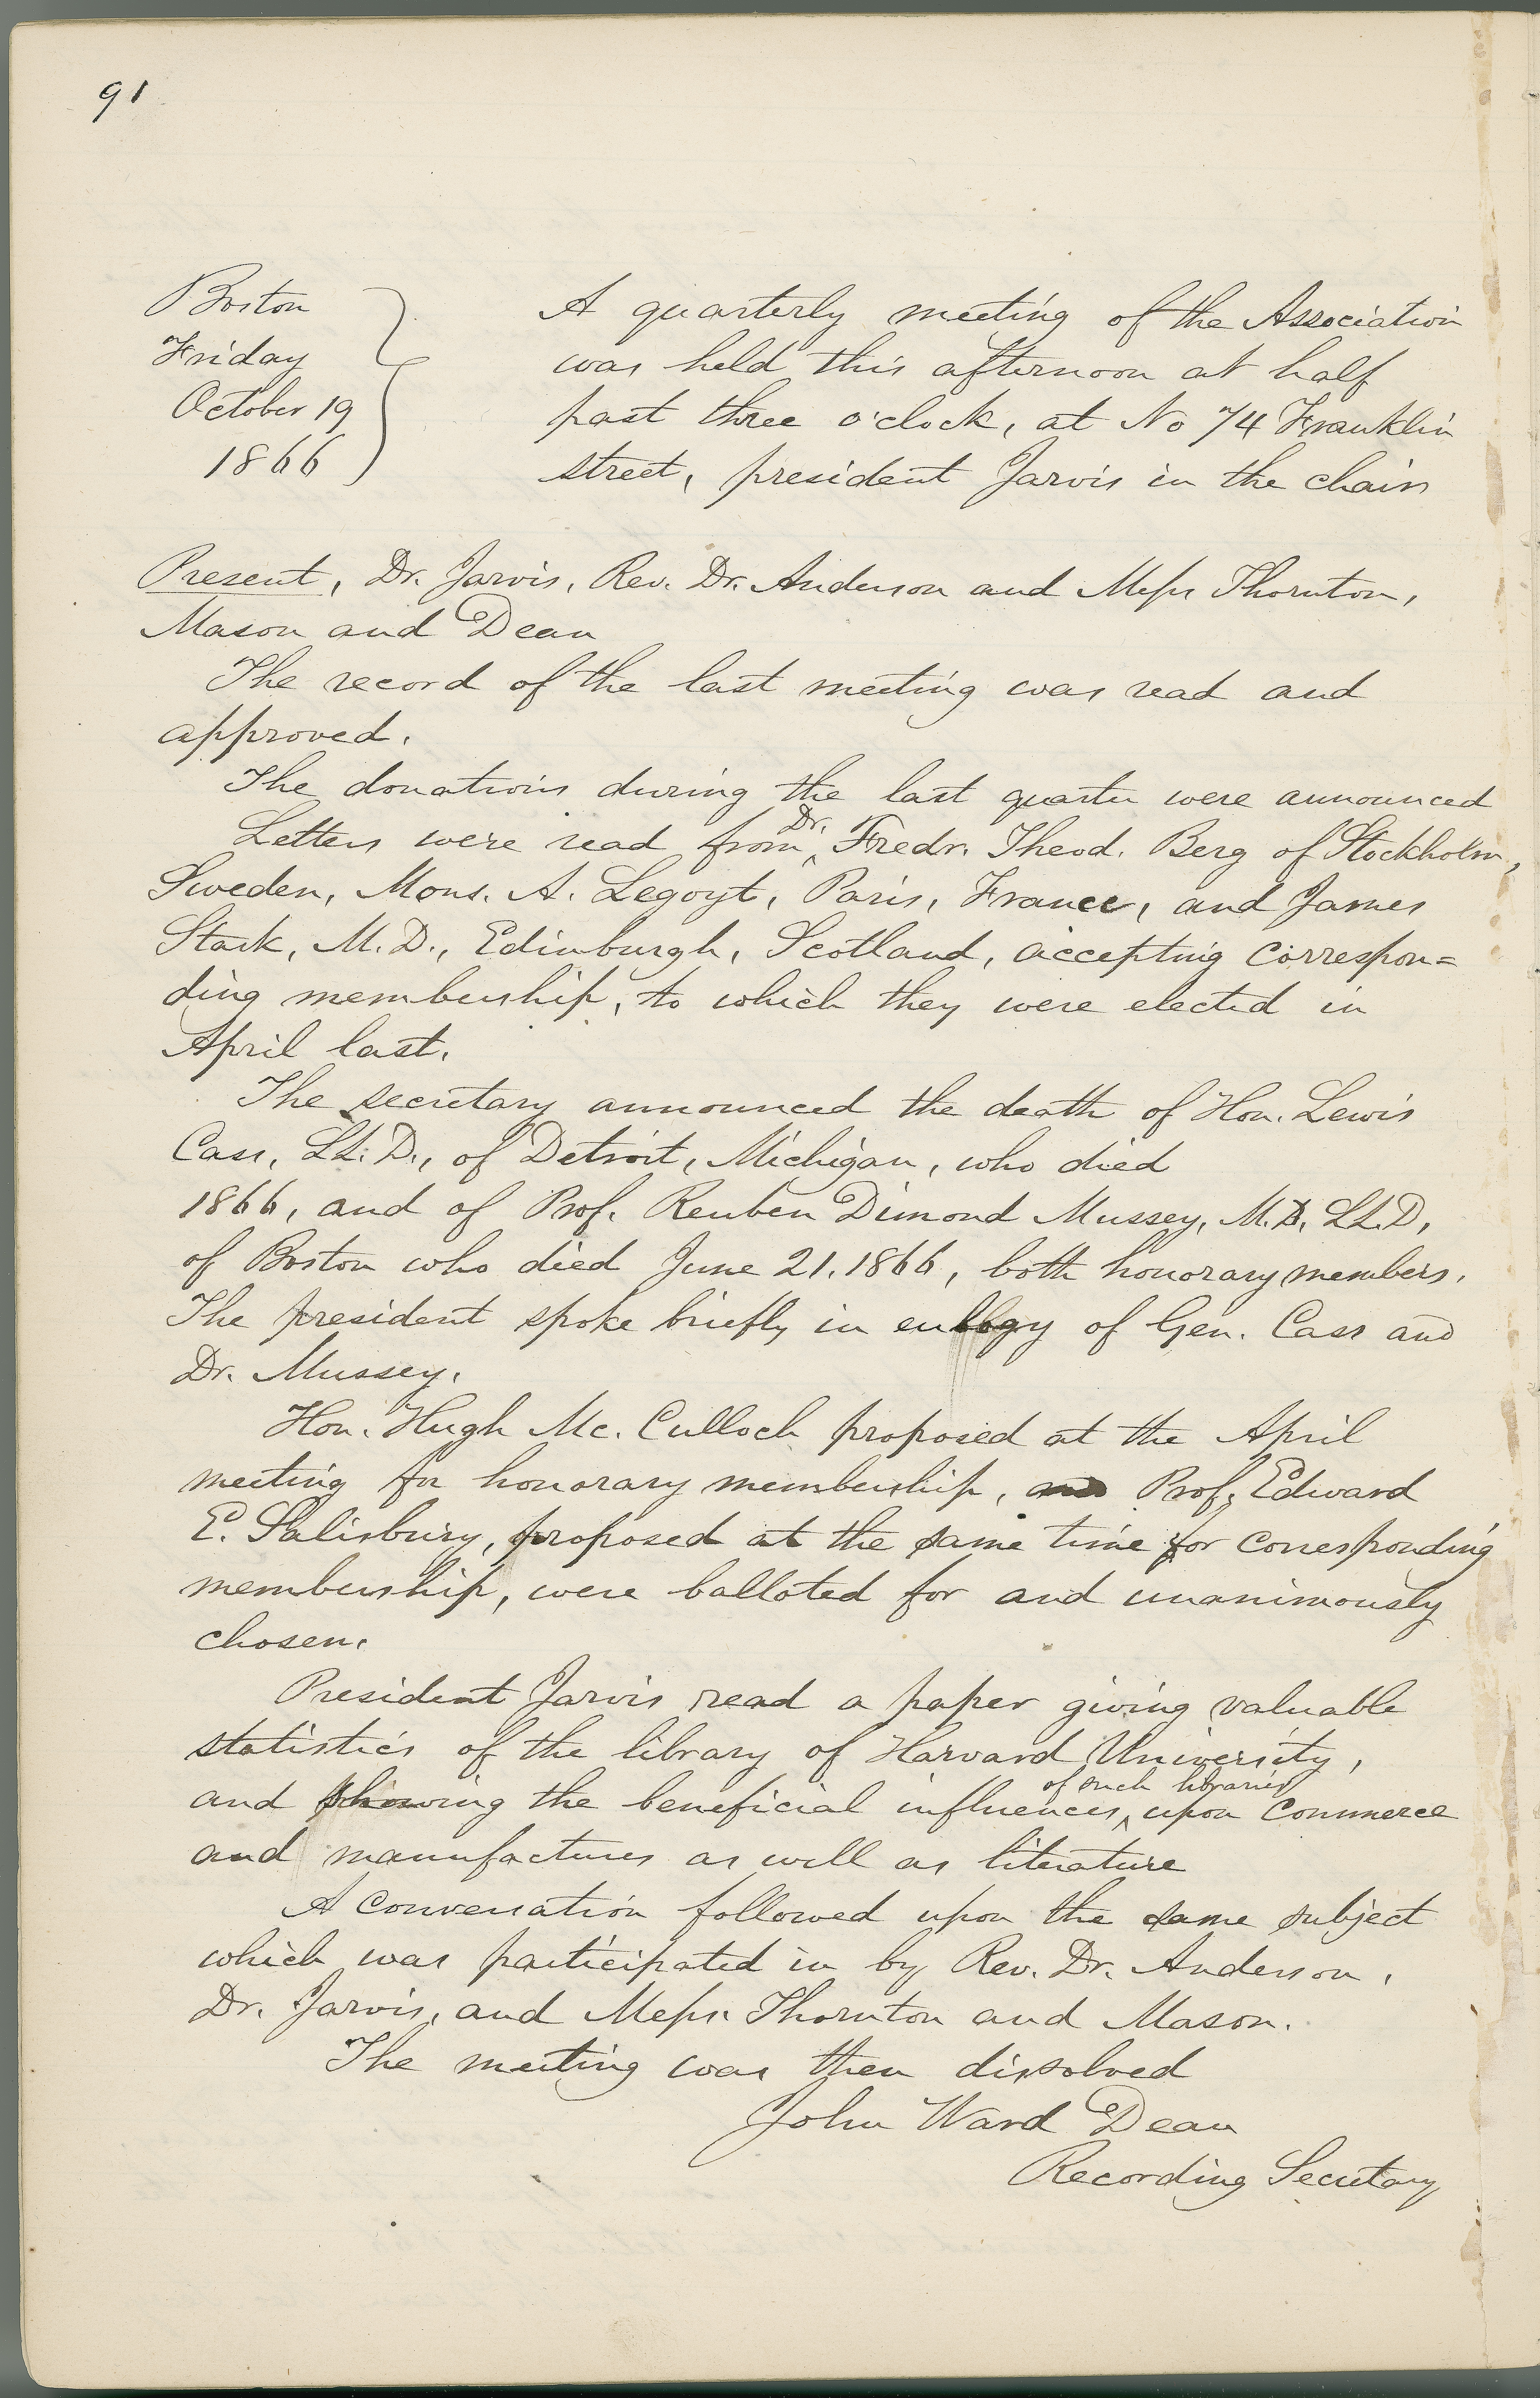 91
Boston
Friday
October 19
1866
A quarterly meeting of the Association
was held this afternoon at half
past three o'clock, at No 74 Franklin
street, president Jarvis in the chair
Present, Dr. Jarvis, Rev. Dr. Anderson and Messrs Thornton,
Mason and Dean
The record of the last meeting was read and
approved.
The donations during the last quarter were announced
Letters were read from Dr. Fredr. Theod. Berg of Stockholm,
Sweden, Mons. A. Legoyt, Paris, France, and James
Stark, M.D., Edinburgh, Scotland, accepting correspon=
ding membership, to which they were elected in
April last.
The secretary announced the death of Hon. Lewis
Cass, LL.D., of Detroit, Michigan, who died
1866, and of Prof. Reuben Dimond Mussey, M.D. LL.D,
of Boston who died June 21. 1866, both honorary members.
The president spoke briefly in eulogy of Gen. Cass and
Dr. Mussey.
Hon. Hugh Mc. Culloch proposed at the April
meeting for honorary membership, and Prof. Edward
E. Salisbury, proposed at the same time for corresponding
membership, were balloted for and unanimously
chosen.
President Jarvis read a paper giving valuable
statistics of the library of Harvard University,
and showing the beneficial influences of such libraries upon commerce
and manufactures as well as literature
A conversation followed upon the same subject
which was participated in by Rev. Dr. Anderson,
Dr. Jarvis, and Messrs. Thornton and Mason.
The meeting was then dissolved
John Ward Dean
Recording Secretary